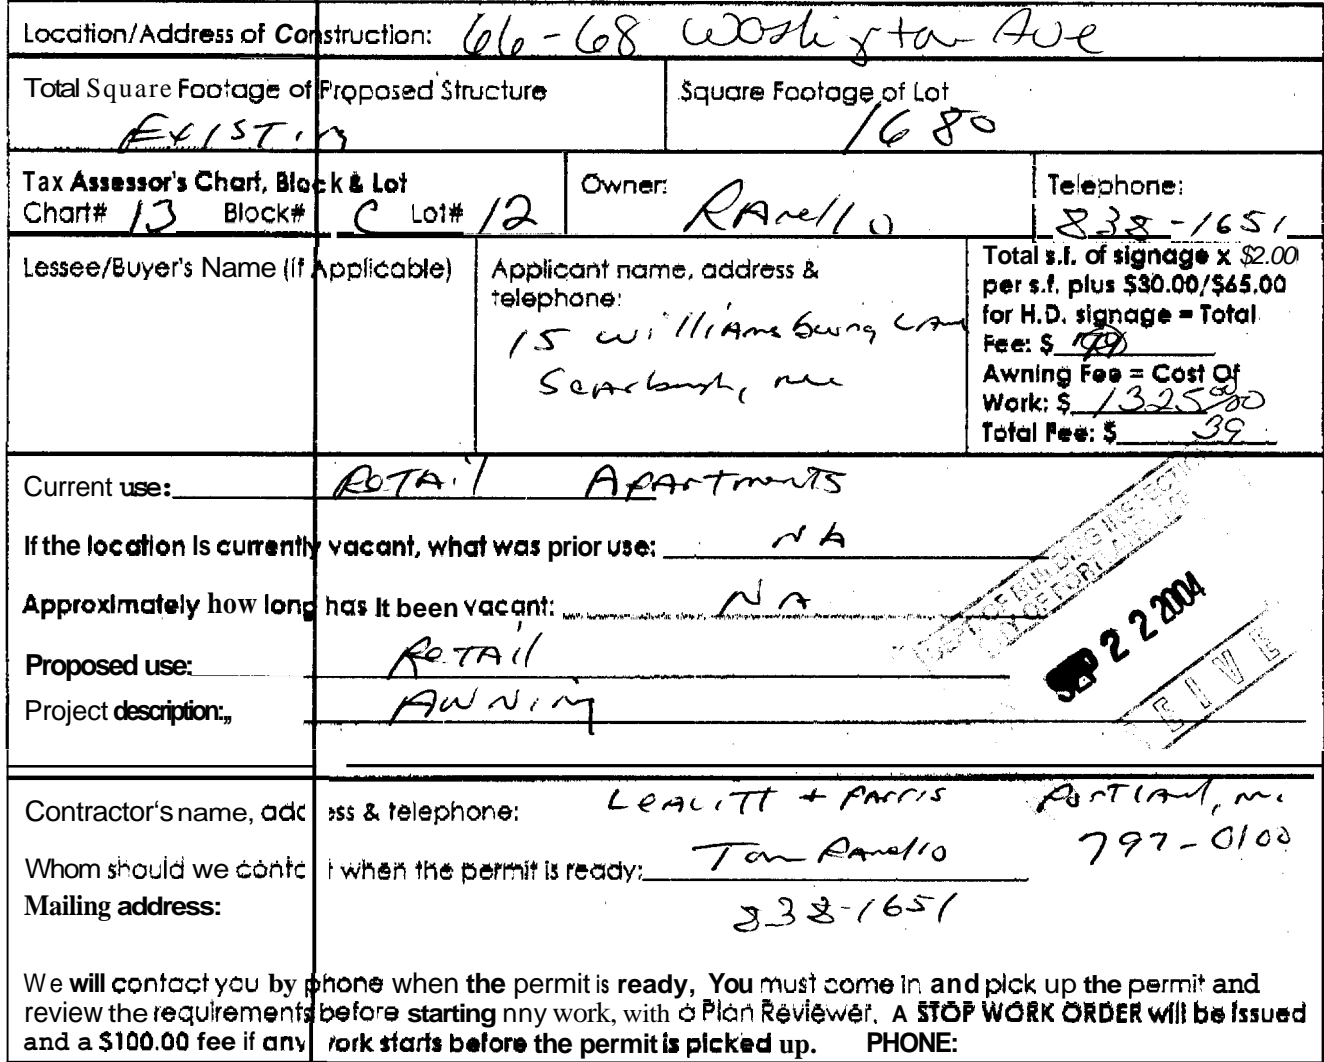 Location/Address of Construction: 66-68 Washington Ave
Total Square Footage of Proposed Structure
Existin
Square Footage of Lot
1680
Tax Assessor's Chart, Block & Lot
Chart# 13 Block# C Lot# 12
Owner:
RAnello
Telephone:
838-1651
Lessee/Buyer's Name (If Applicable)
Applicant name, address & telephone:
15 Williamsburg Lane
Scarborough, me
Total s.f. of signage x $2.00
per s.f. plus $30.00/$65.00
for H.D. signage = Total
Fee: $
Awning Fee = Cost Of
Work: $ 1325 00/00
Total Fee: $ 39
Current use: RETAil APArtments
If the location is currently vacant, what was prior use: NA
Approximately how long has it been vacant: NA
Proposed use: RETAil
Project description: AWNing
DEPT. OF BUILDING INSPECTION
CITY OF PORTLAND, ME
SEP 22 2004
EIVE
Contractor's name, add ess & telephone: LEAVITT + PARRIS PORTLAnd, me
797-0100
Whom should we contac t when the permit is ready: Tom Ranello
Mailing address: 838-1651
We will contact you by phone when the permit is ready, You must come in and pick up the permit and
review the requirements before starting nny work, with a Plan Reviewer. A STOP WORK ORDER will be issued
and a $100.00 fee if any work starts before the permit is picked up. PHONE: